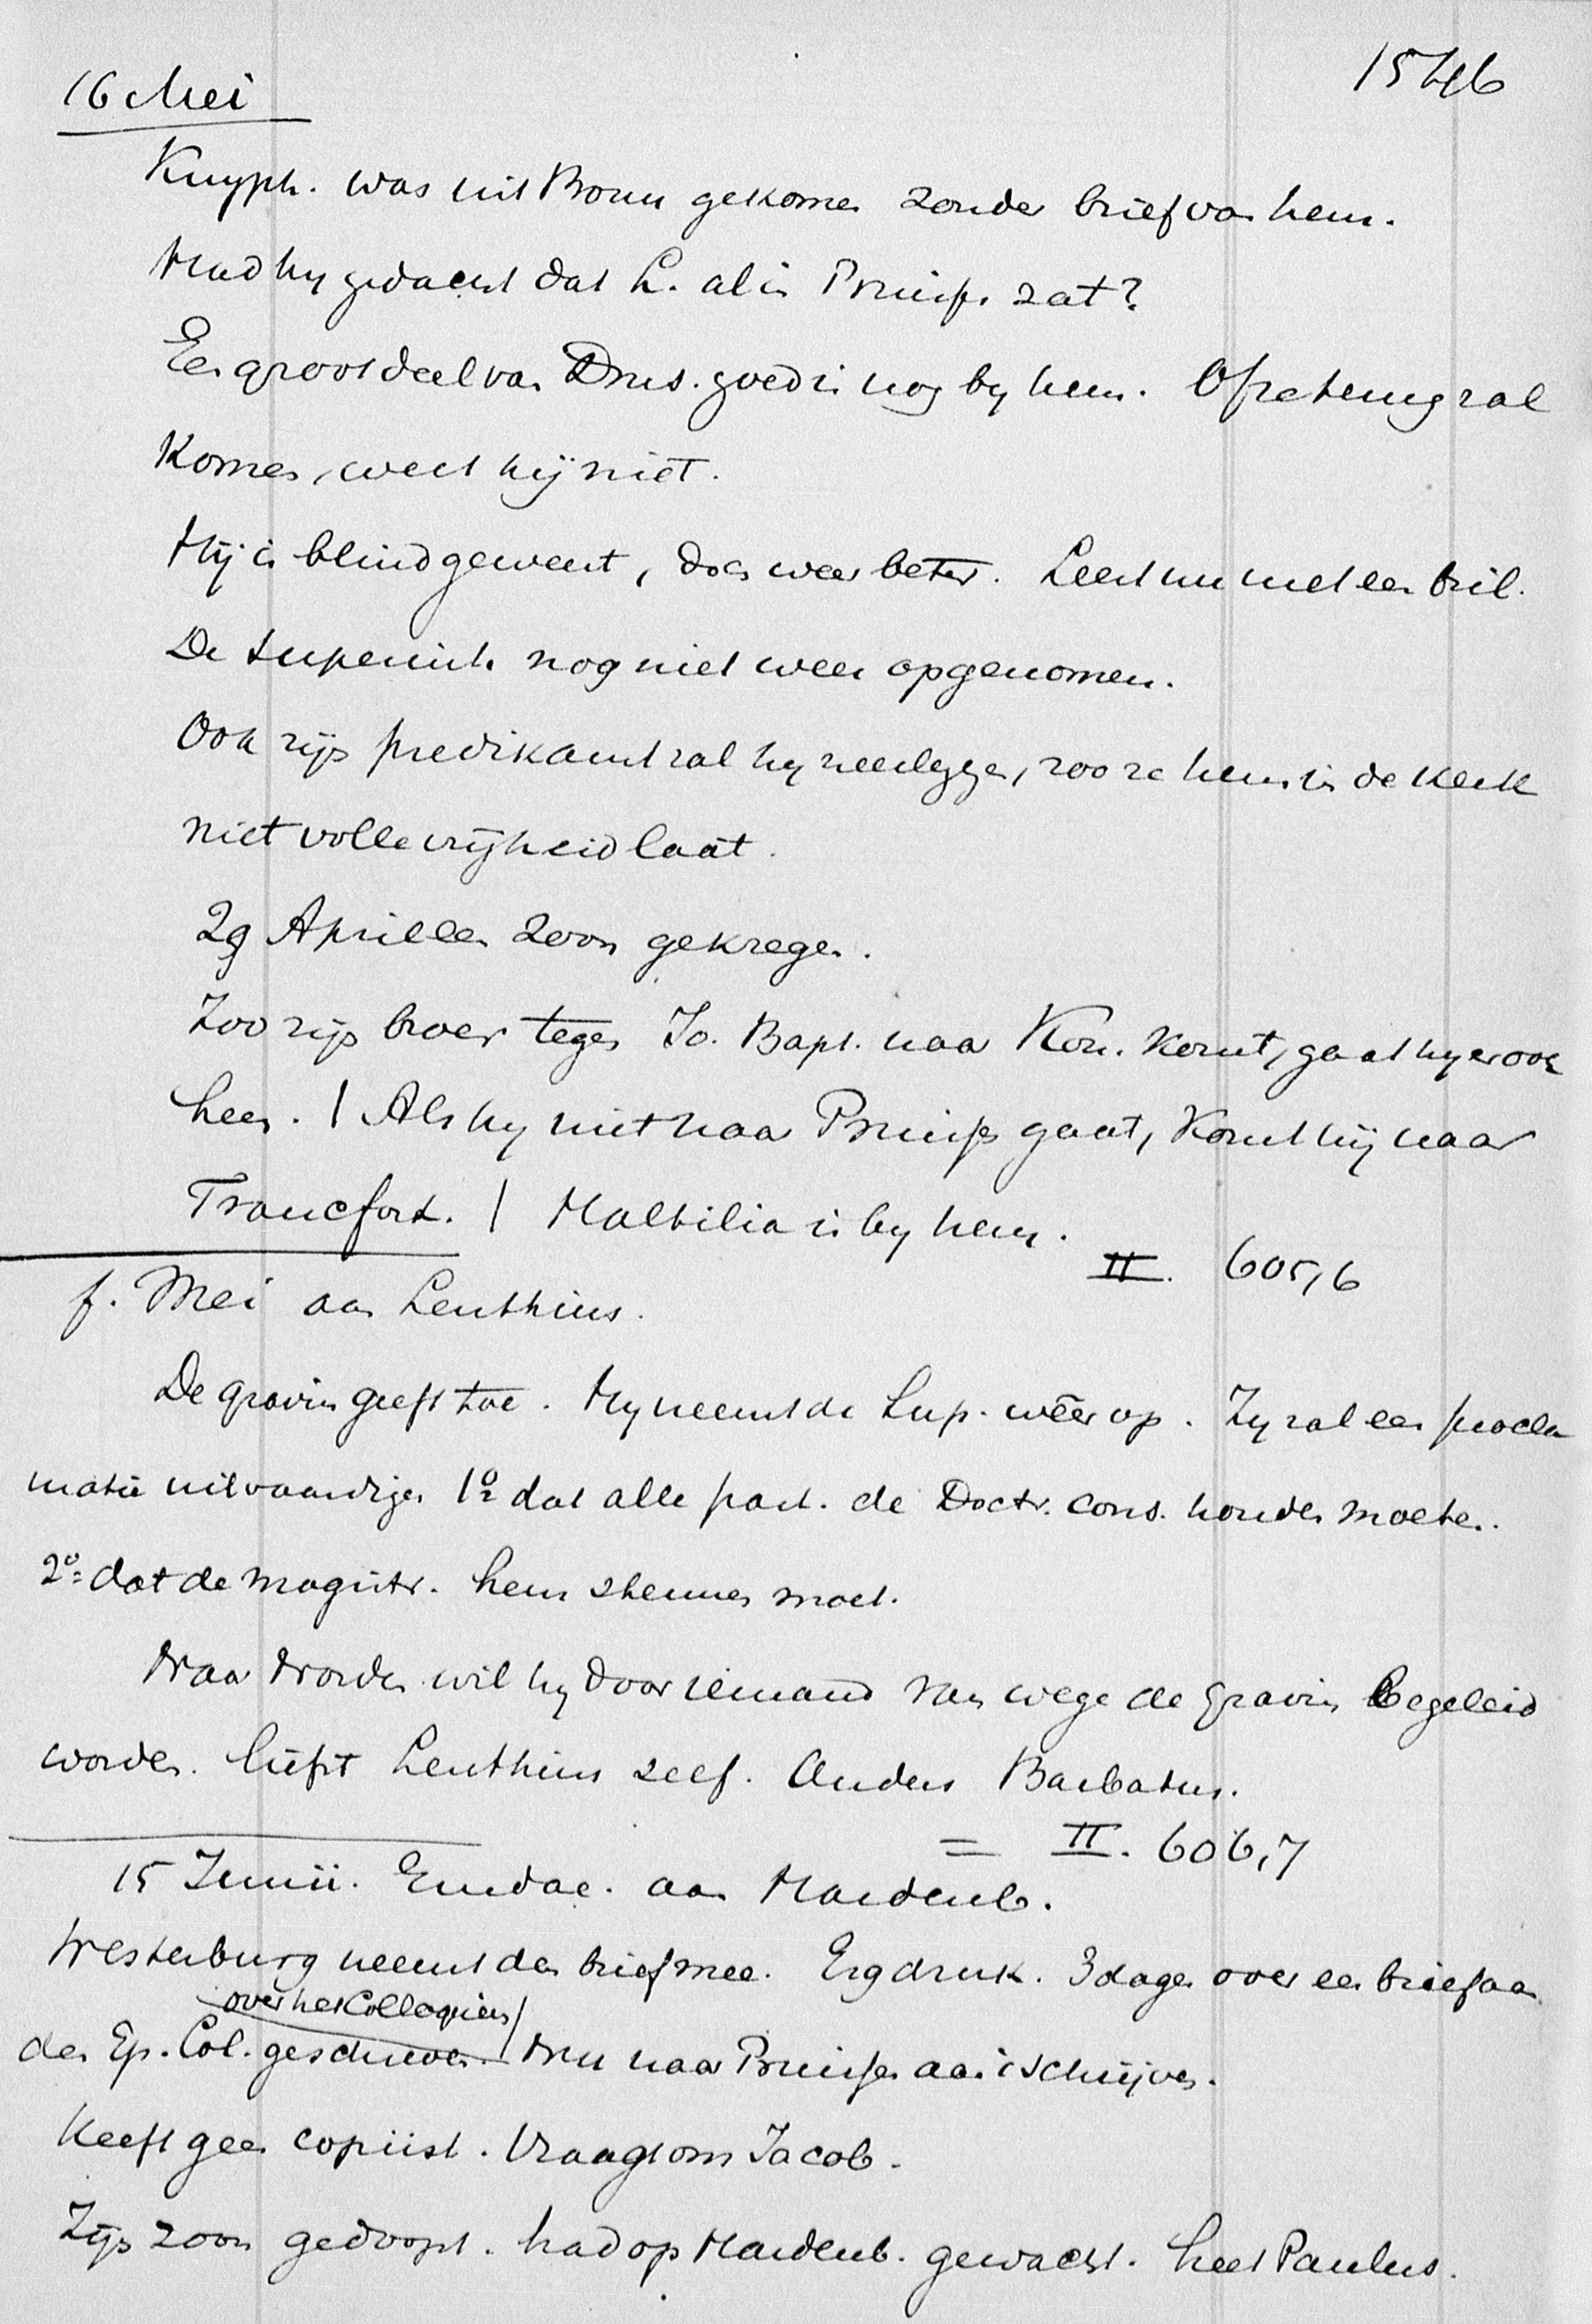 16 Mei
1546
Knyph. was uit Bonn gekomen zonder brief van hem.
Had hy gedacht dat L. al in Pruis. zat?
Een groot deel van Dns. goed is nog by hem. Of ze terug zal
Komen, weet hij niet.
Hij is blind geweest, doch weer beter. Leest nu met een bril.
De superint. nog niet weer opgenomen.
Ook zijn predikamt zal hy neerleggen, zoo ze hem in de Kerk
niet volle vrijheid laat.
29 April een zoon gekregen.
Zoo zijn broer tegen Jo. Bapt. naar Kon. Komt, gaat hy er ook
heen. | Als hy niet naar Pruisen gaat, Komt hij naar
Francfort. | Halbilia is by hem.
II. 605,6
f. Mei aan Lenthius.
De gravin geeft toe. Hy neemt de Sup. wêer op. Zy zal een procla
matie uitvaardigen 1º dat alle past. de Doctr. cons. houden moeten.
2º dat de magistr. hem steunen moet.
Naar Norden wil hy door iemand van wege de gravin begeleid
worden. liefst Lenthius zelf. Anders Barbatus.
= II. 606,7
15 Junii. Emdae. aan Hardenb.
Westerburg neemt den brief mee. Erg druk. 3 dagen over een brief aan
over het Colloquium
den Ep. Col. geschreven. | Nu naar Pruisen aan 't schrijven.
Heeft geen copiist. Vraagt om Jacob.
Zijn zoon gedoopt. had op Hardenb. gewacht. heet Paulus.